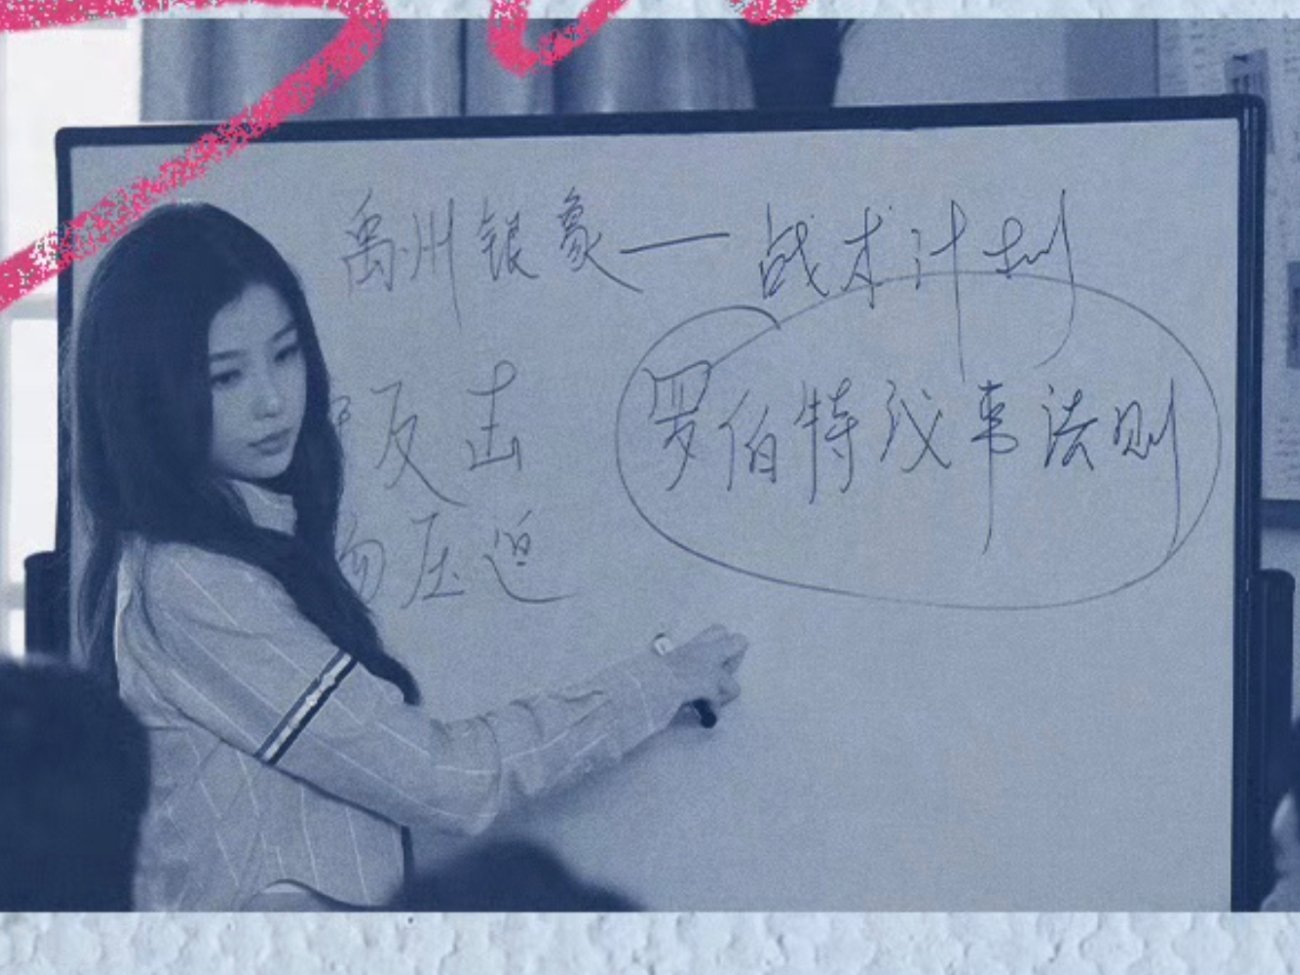 禹州银象——战术计划
反击
罗伯特战事法则
压迫